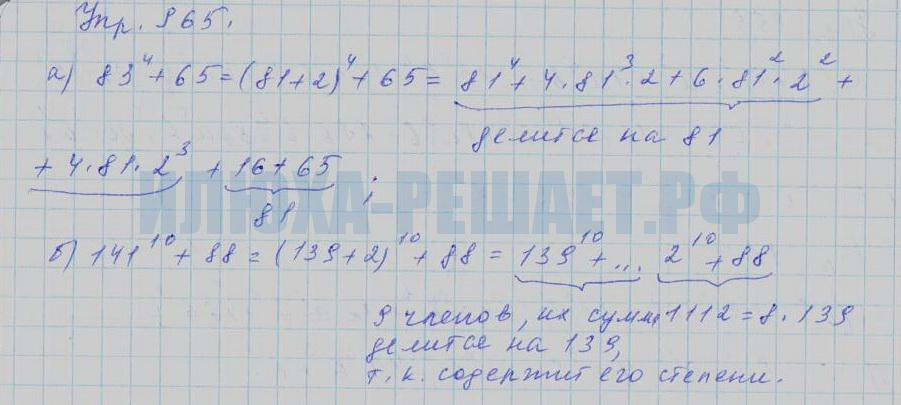 Упр. 965.
а) 83⁴ + 65 = (81+2)⁴ + 65 = 81⁴ + 4·81³·2 + 6·81²·2² +
делится на 81
+ 4·81·2³ + 16 + 65 ;
81
ИЛЮХА-РЕШАЕТ.РФ
б) 141¹⁰ + 88 = (139+2)¹⁰ + 88 = 139¹⁰ + ... 2¹⁰ + 88
9 членов, их сумма 1112 = 8·139
делится на 139,
т.к. содержит его степени.